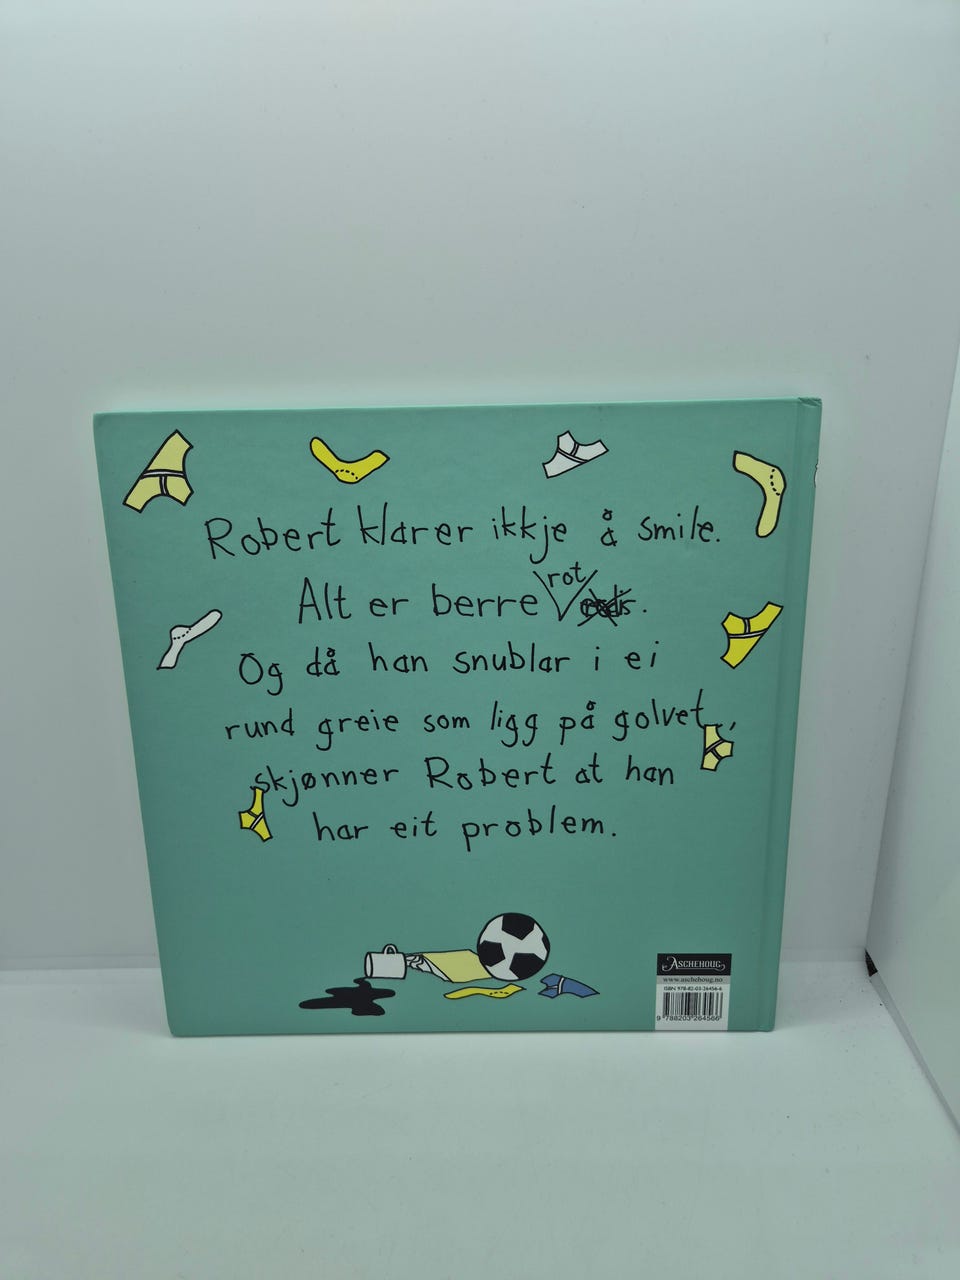 Robert klarer ikkje å smile.
rot
Alt er berre .
Og då han snublar i ei
rund greie som ligg på golvet,
skjønner Robert at han
har eit problem.
ASCHEHOUG
www.aschehoug.no
ISBN 978-82-03-26456-6
9 788203 264566